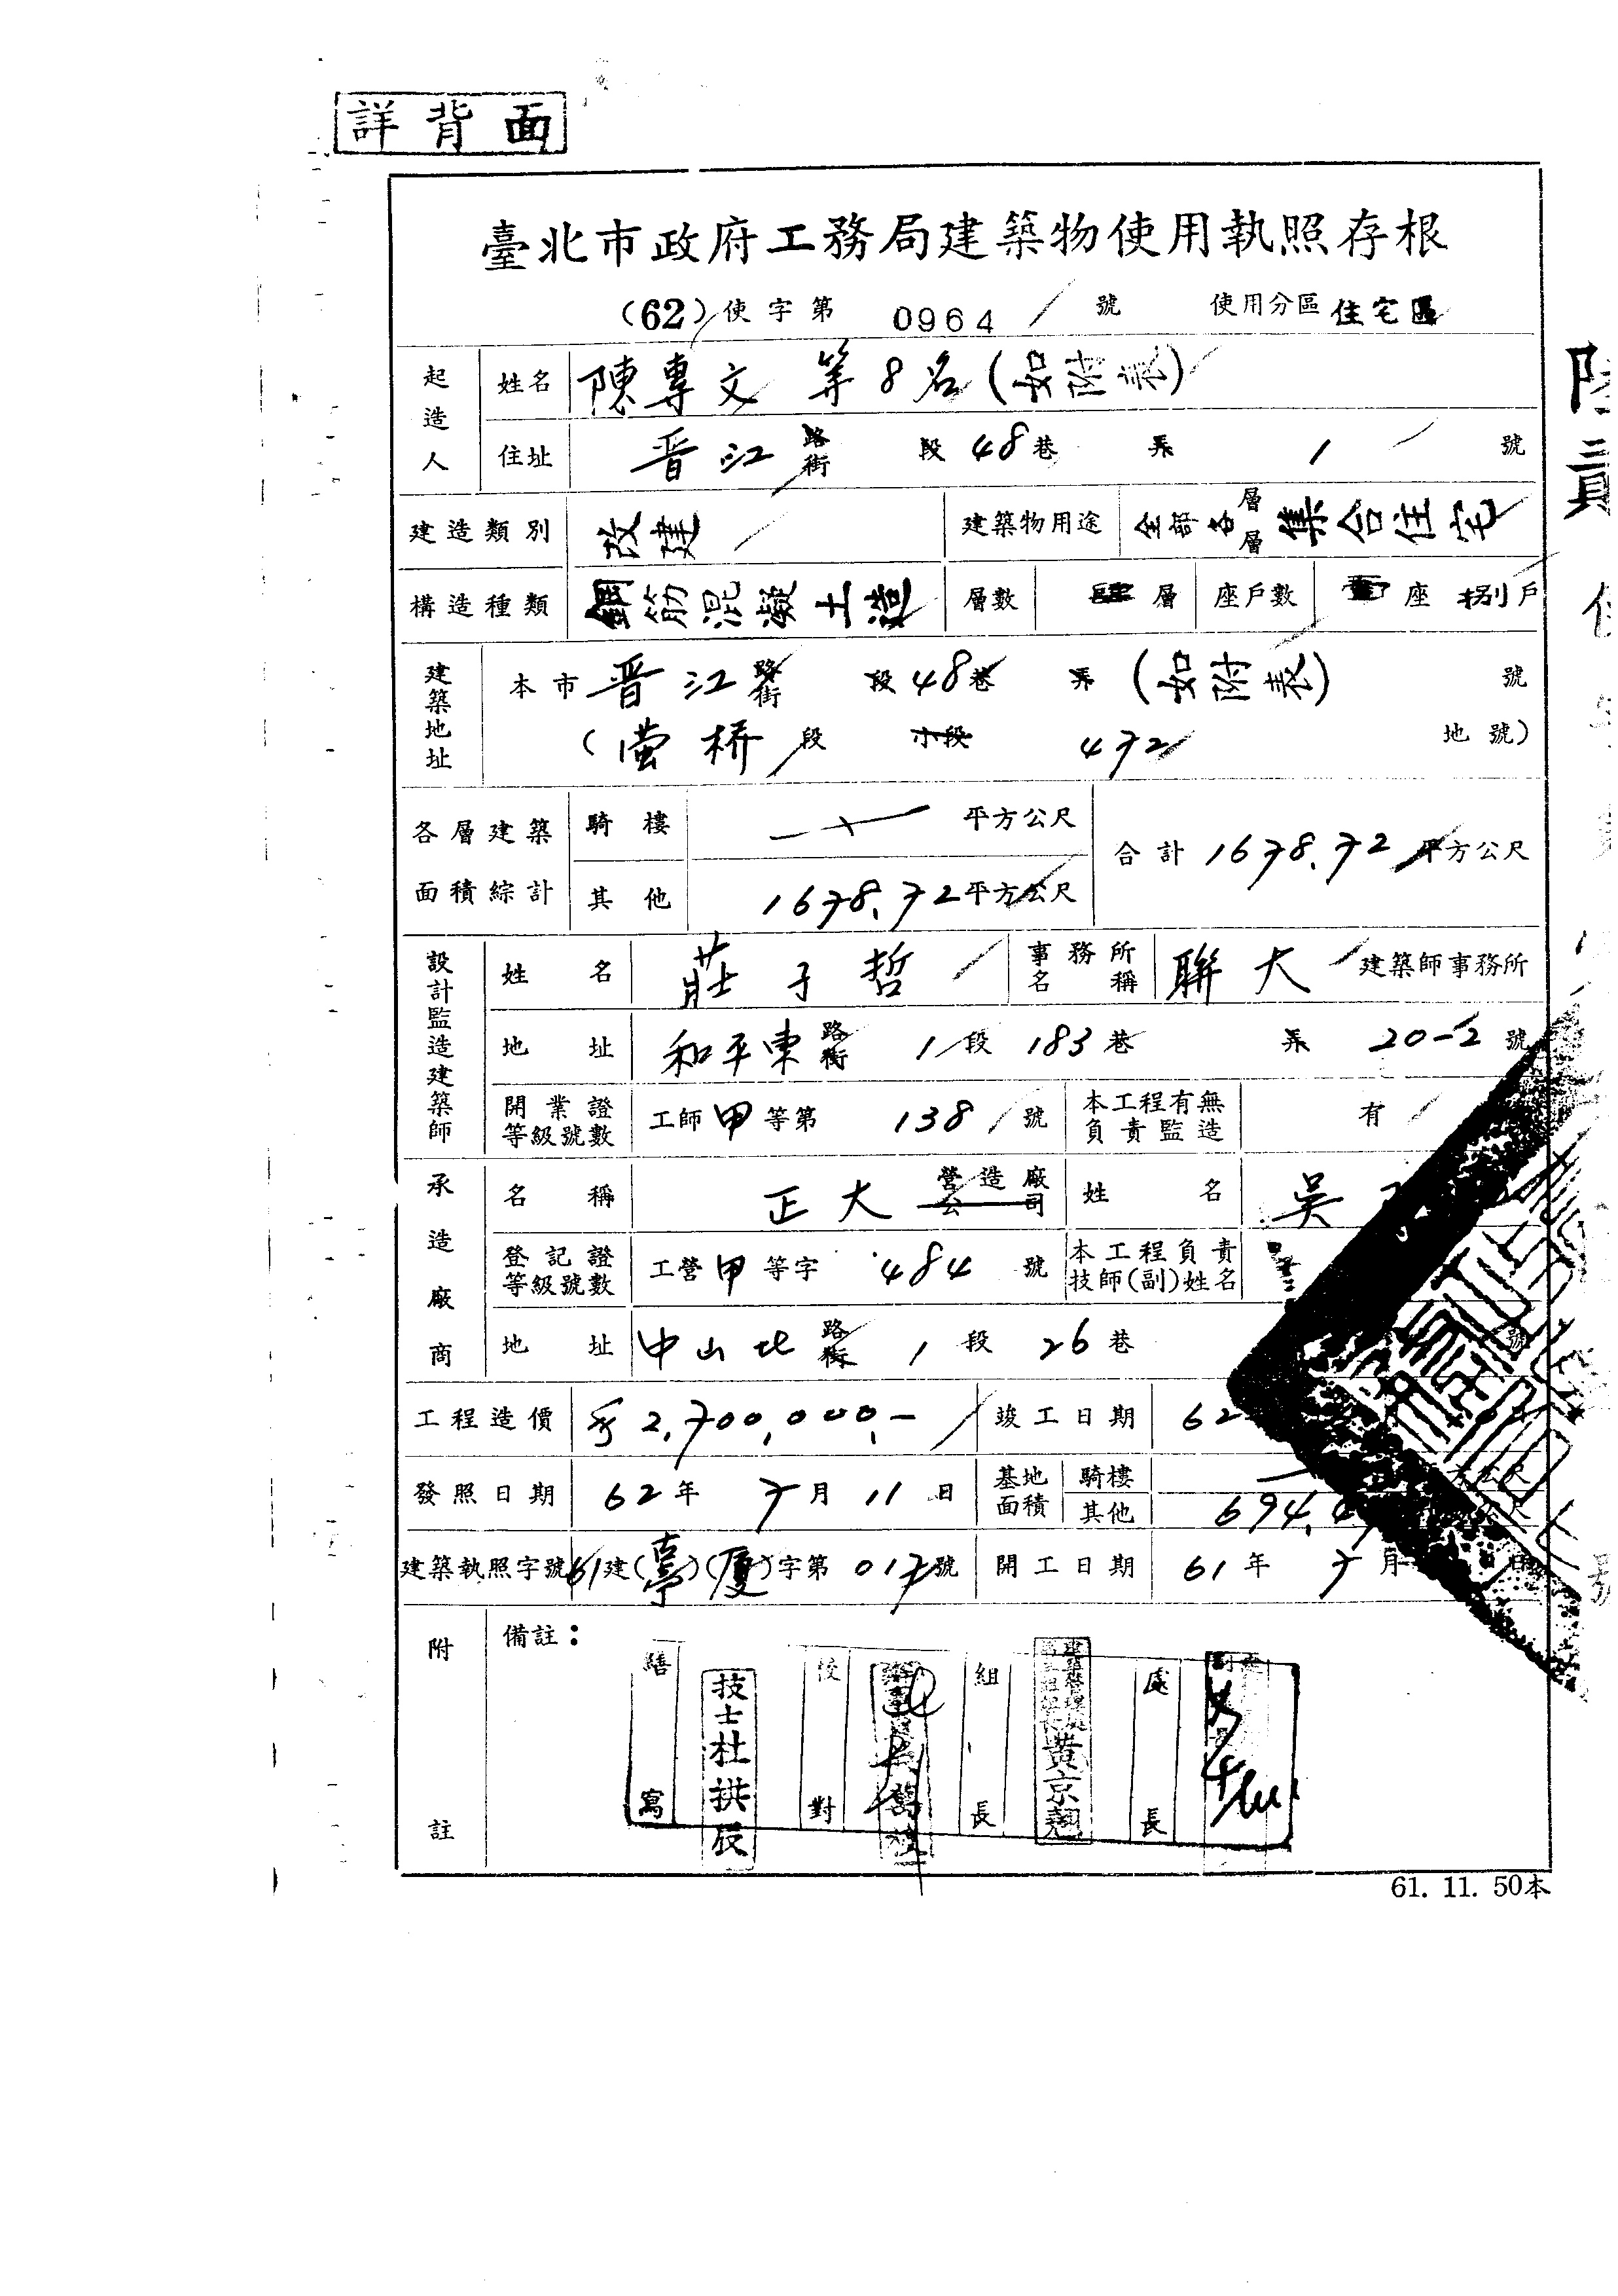 詳背面
臺北市政府工務局建築物使用執照存根
(62)使字第 0964 號 使用分區 住宅區
起造人 姓名 陳專文 等8名(如附表)
住址 晋江 路街 段 48巷 弄 1 號
建造類別 改建 建築物用途 全部各層層 集合住宅
構造種類 鋼筋混凝土造 層數 肆層 座戶數 壹座 捌戶
建築地址 本市 晋江 路街 段 48巷 弄 (如附表) 號
(螢桥 段 小段 472 地號)
各層建築面積綜計 騎樓 平方公尺 合計 1678.72 平方公尺
其他 1678.72 平方公尺
設計監造建築師 姓名 莊子哲 事務所名稱 聯大 建築師事務所
地址 和平東 路街 1段 183巷 弄 20-2 號
開業證等級號數 工師甲等第 138 號 本工程有無負責監造 有
承造廠商 名稱 正大 營造廠公司 姓名 吳
登記證等級號數 工營甲等字 484 號 本工程負責技師(副)姓名
地址 中山北 路街 1段 26巷 號
工程造價 2,700,000.- 竣工日期 62
發照日期 62年 7月 11日 基地面積 騎樓 方公尺
其他 694.4
建築執照字號 61建( )(厦)字第 017號 開工日期 61年 7月 日
附註 備註：
繕寫 技士杜拱辰 校對 組長 黃京翹 處長
61. 11. 50本